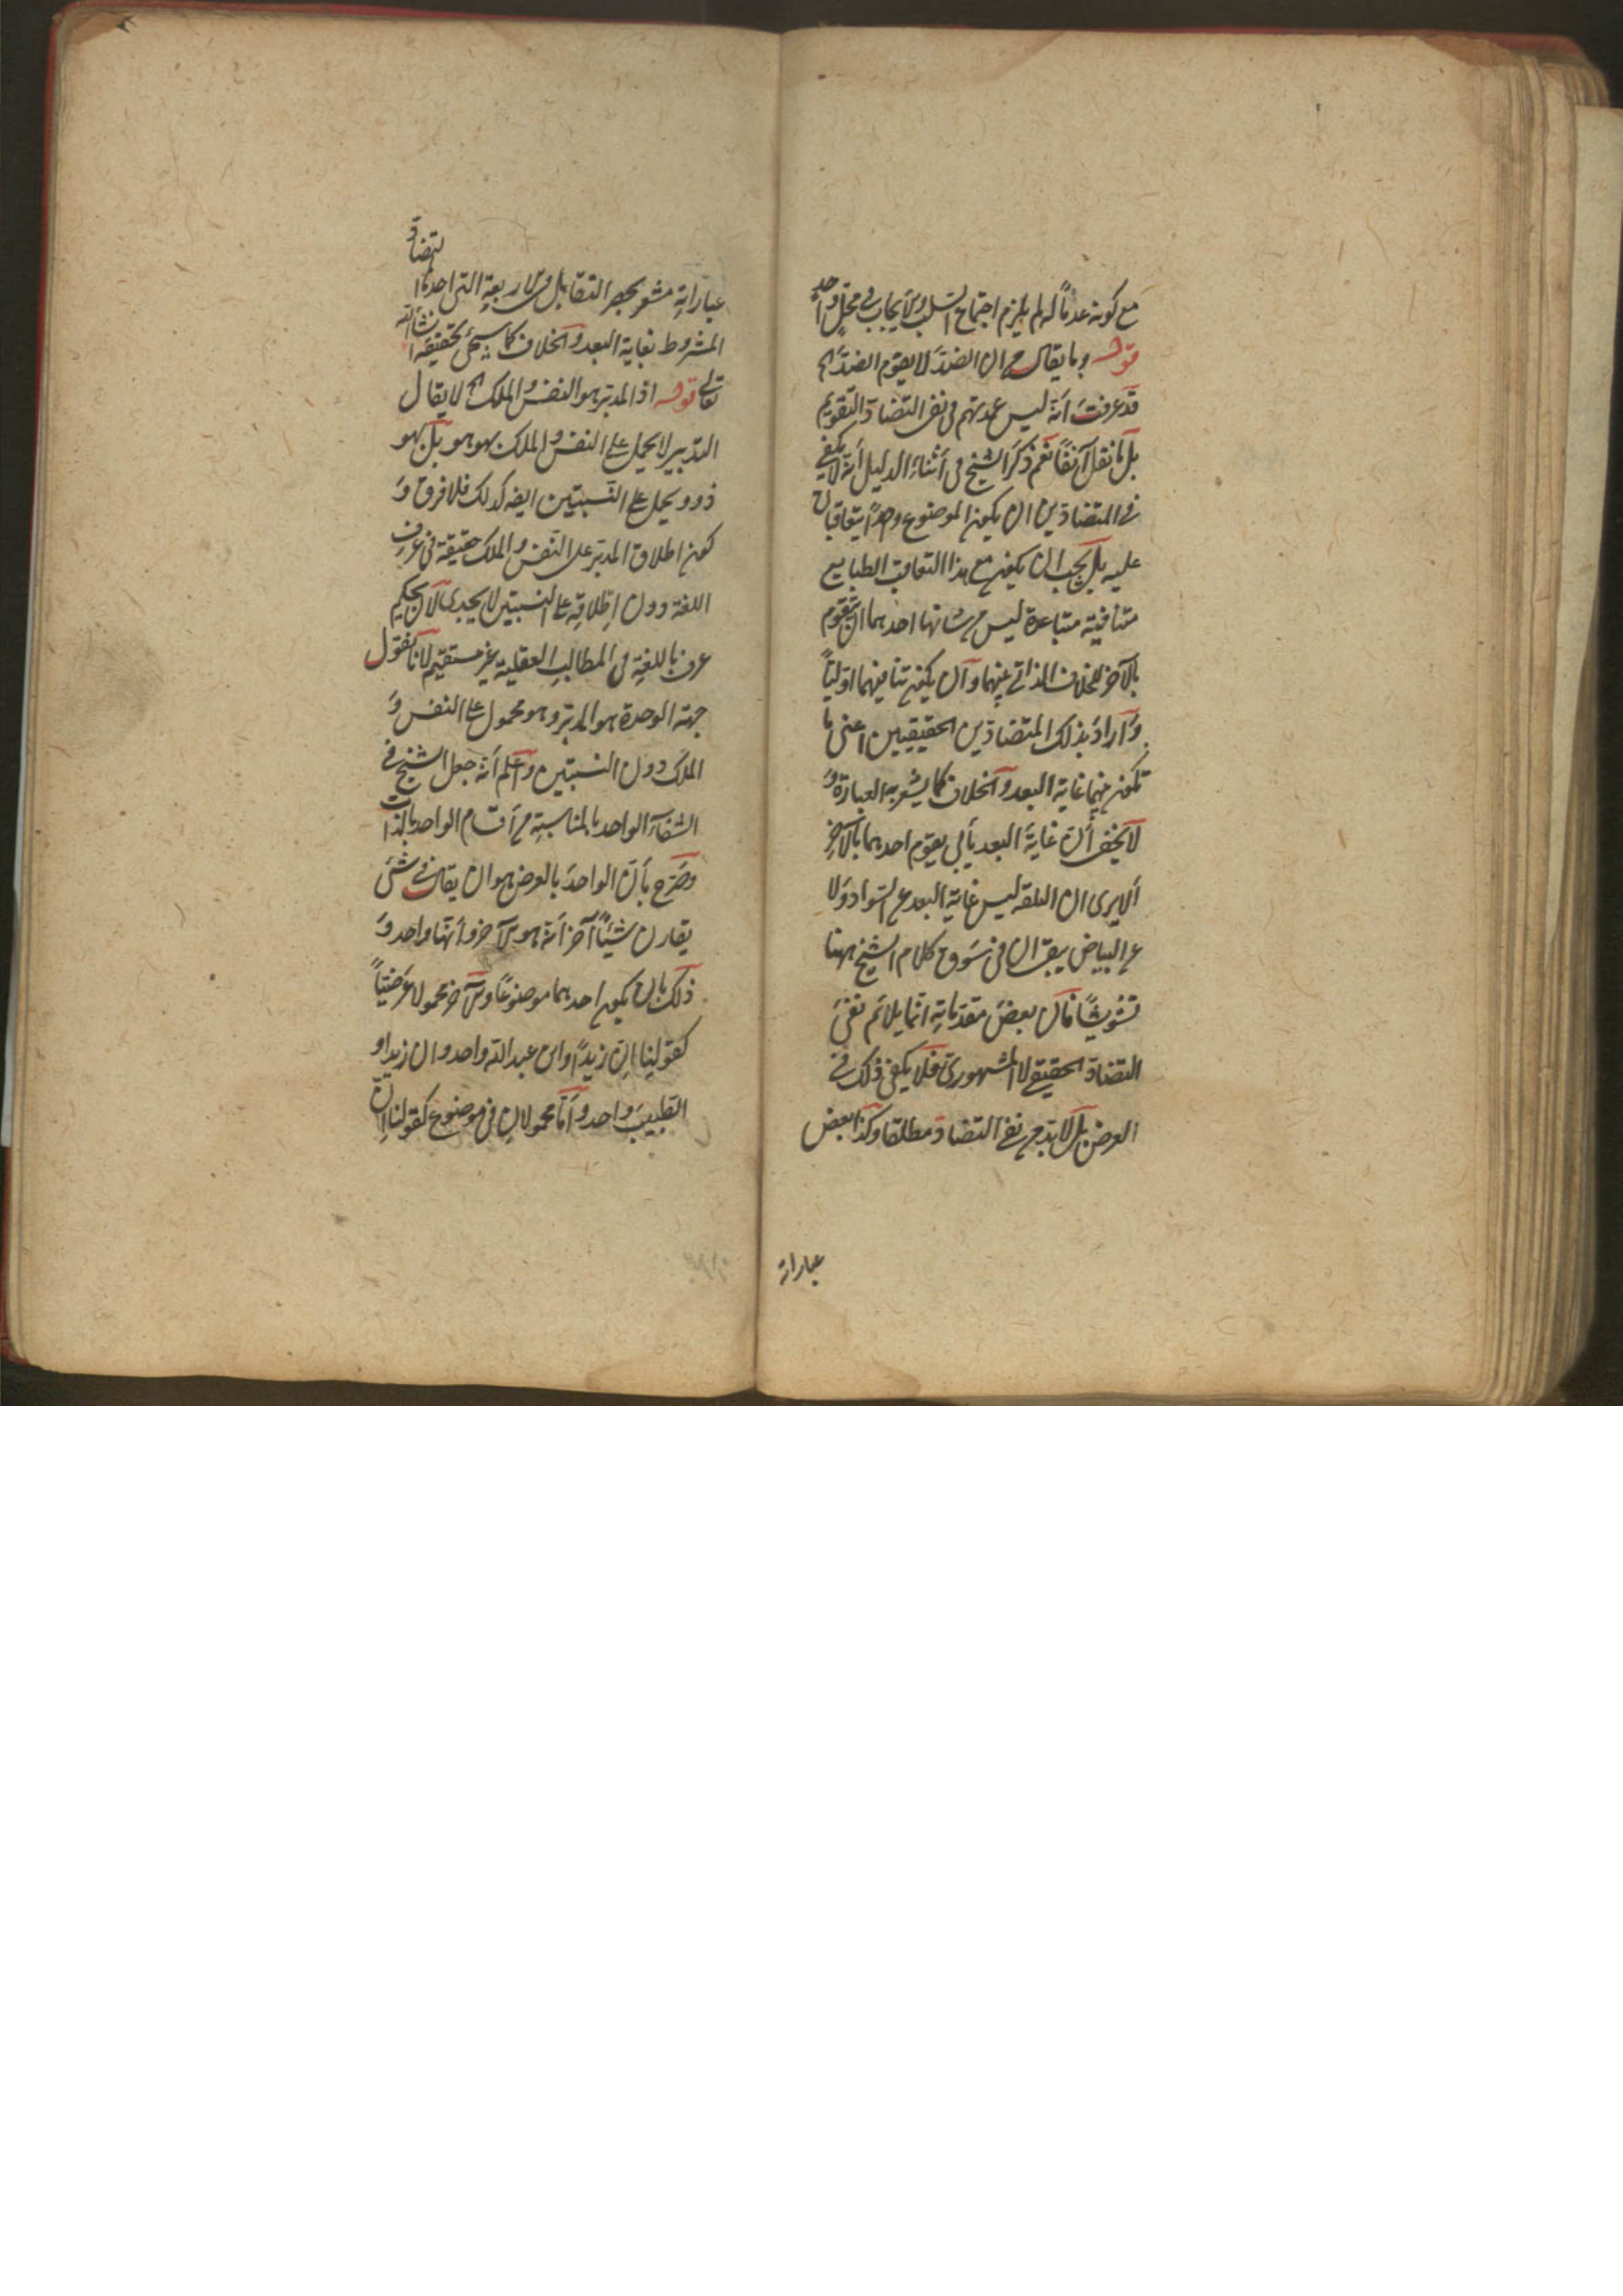 مع كونه عدماً له لم يلزم اجتماع السلب والايجاب فى محلّ واحد
قوله وما يقال من ان الضدّ لا يقوم الضدّ اه
قد عرفت أنه ليس عمدتهم فى نفى التضادّ التقويم
بل ما نقل آنفاً نعم ذكر الشيخ فى أثناء الدليل أنه لا يكفى
فى المتضادّين ان يكون الموضوع واحداً يتعاقبان
عليه بل يجب ان يكون مع هذا التعاقب الطبايع
متنافية متباعدة ليس من شانها احدهما ان يتقوم
بالآخر للخلاف الذاتى بينهما وآن يكون تنافيهما اوّلياً
وأراد بذلك المتضادّين الحقيقيين اعنى ما
تكون بينهما غاية البعد والخلاف كما يشعر به العبارة و
لا يخفى أن غاية البعد يأبى يقوم احدهما بالآخر
ألا يرى ان البلقة ليس غاية البعد عن السواد ولا
عن البياض بقى ان فى سَوق كلام الشيخ ههنا
تشويشاً فان بعضَ مقدّماتِه انّما يلائم نفىَ
التضادّ الحقيقى لا المشهورىّ فلا يكفى ذلك فى
الغرض بل لا بدّ من نفى التضادّ مطلقا وكذا بعض
عباراته
عباراتِه مشعر بحصر التقابل فى الاربعةِ التى احدها التضادّ
المشروط بغاية البعد والخلاف كما سيجىء تحقيقه انشاء الله
تعالى قوله اذ المدبّر هو النفس والملك اه لا يقال
التدبير لا يحمل على النفس والملك بهو هو بل بهو
ذو ويحمل على النسبتين ايضه كذلك فلا فرق و
كون اطلاق المدبّر على النفس والملك حقيقة فى عرف
اللغة دون إطلاقه على النسبتين لا يجدى لان تحكيم
عرف اللغة فى المطالب العقلية غير مستقيم لانا نقول
جهة الوحدة هو المدبّر وهو محمول على النفس و
الملك دون النسبتين واعلم أنه جعل الشيخ فى
الشفاء الواحد بالمناسبة من أقسام الواحد بالذات
وصرّح بأن الواحدَ بالعرض هو ان يقال فى شىء
يقارن شيئاً آخر أنه هو الآخر وأنهما واحد و
ذلك بان يكون احدهما موضوعاً والآخر محمولا عَرَضيّاً
كقولنا إن زيداً وابن عبد الله واحد وان زيدا و
الطبيبَ واحد وأمّا محمولانِ فى موضوع كقولنا إنّ